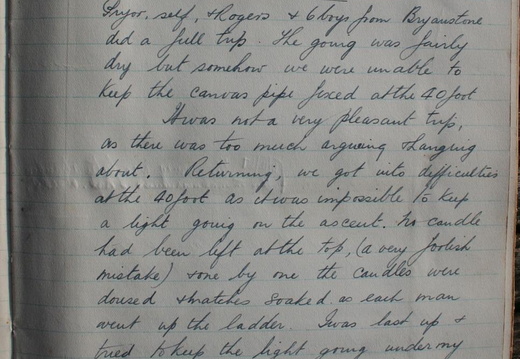 Pryor, self, & Rogers & 6 boys from Bryanstone
did a full trip. The going was fairly
dry but somehow we were unable to
keep the canvas pipe fixed at the 40 foot
It was not a very pleasant trip,
as there was too much argueing & hanging
about. Returning, we got into difficulties
at the 40 foot as it was impossible to keep
a light going on the ascent. No candle
had been left at the top, (a very foolish
mistake) & one by one the candles were
doused & matches soaked as each man
went up the ladder. I was last up &
tried to keep the light going under my